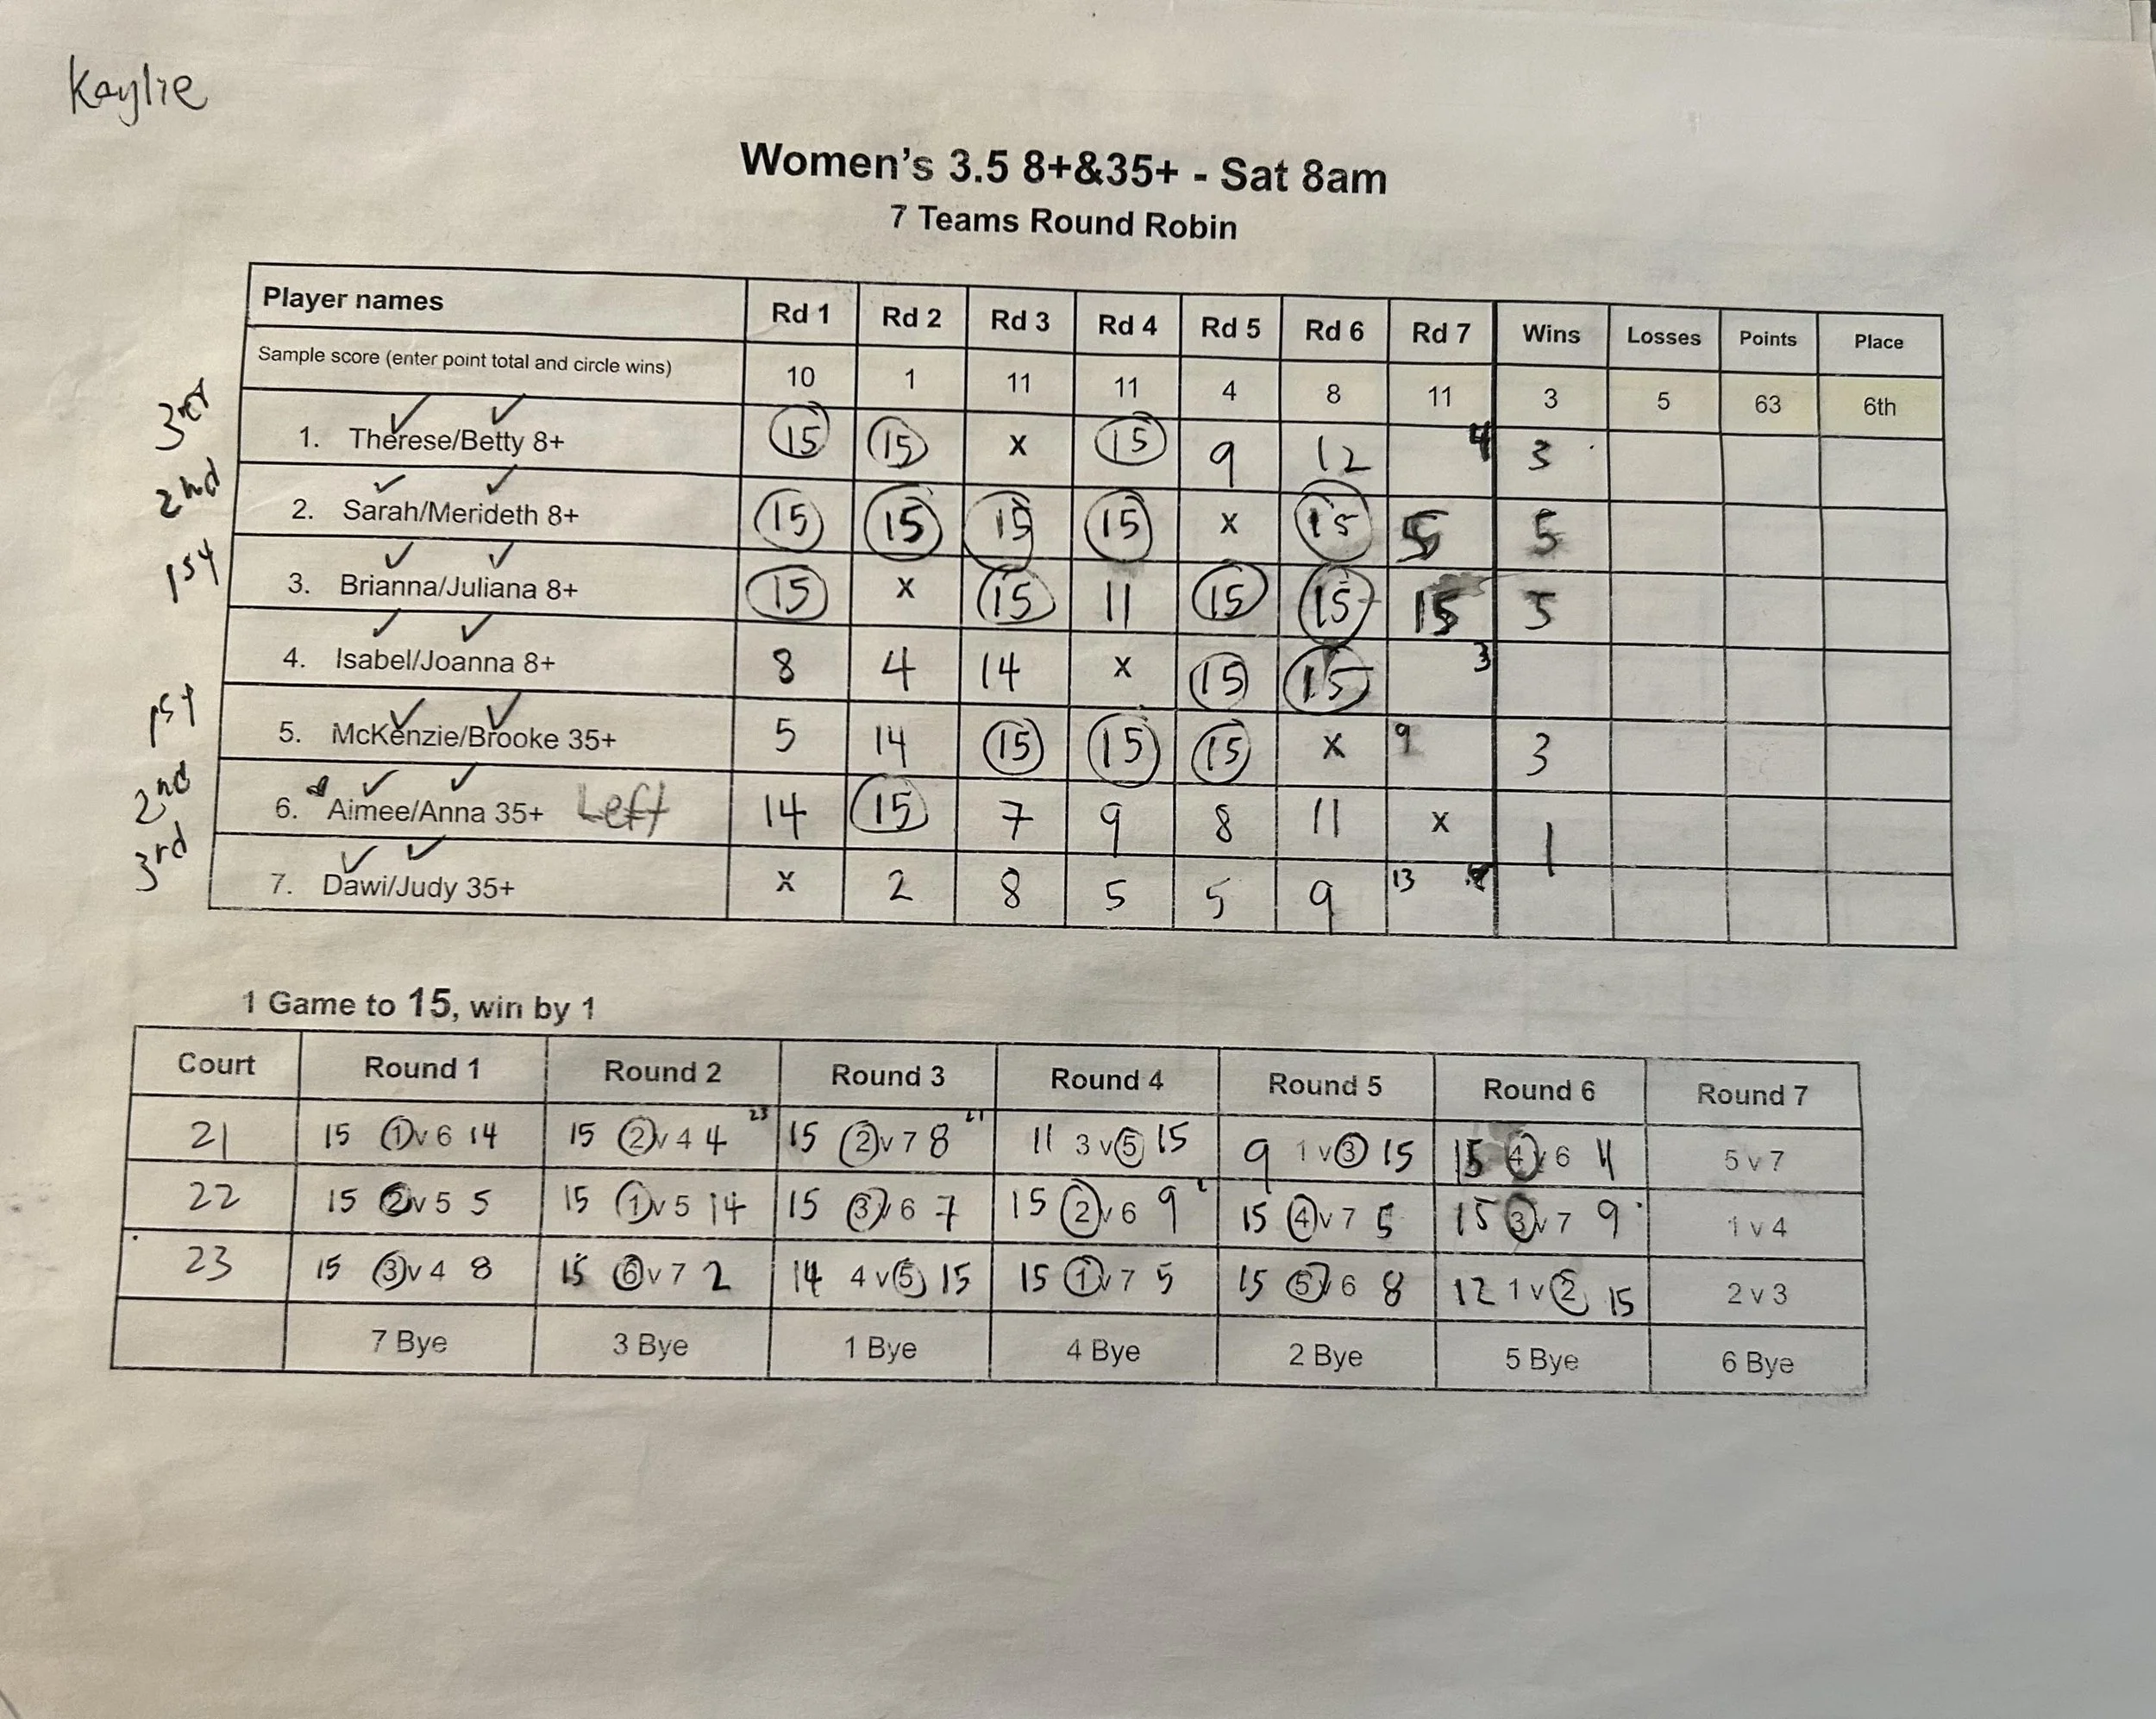 Kaylie
Women's 3.5 8+&35+ - Sat 8am
7 Teams Round Robin
Player names Rd 1 Rd 2 Rd 3 Rd 4 Rd 5 Rd 6 Rd 7 Wins Losses Points Place
Sample score (enter point total and circle wins) 10 1 11 11 4 8 11 3 5 63 6th
3rd 1. Therese/Betty 8+ 15 15 x 15 9 12 4 3
2nd 2. Sarah/Merideth 8+ 15 15 15 15 x 15 5 5
1st 3. Brianna/Juliana 8+ 15 x 15 11 15 15 15 5
4. Isabel/Joanna 8+ 8 4 14 x 15 15 3
1st 5. McKenzie/Brooke 35+ 5 14 15 15 15 x 9 3
2nd 6. Aimee/Anna 35+ Left 14 15 7 9 8 11 x 1
3rd 7. Dawi/Judy 35+ x 2 8 5 5 9 13
1 Game to 15, win by 1
Court Round 1 Round 2 Round 3 Round 4 Round 5 Round 6 Round 7
21 15 1 v 6 14 15 2 v 4 4 23 15 2 v 7 8 21 11 3 v 5 15 9 1 v 3 15 15 4 v 6 11 5 v 7
22 15 2 v 5 5 15 1 v 5 14 15 3 v 6 7 15 2 v 6 9 15 4 v 7 5 15 3 v 7 9 1 v 4
23 15 3 v 4 8 15 6 v 7 2 14 4 v 5 15 15 1 v 7 5 15 5 v 6 8 12 1 v 2 15 2 v 3
7 Bye 3 Bye 1 Bye 4 Bye 2 Bye 5 Bye 6 Bye